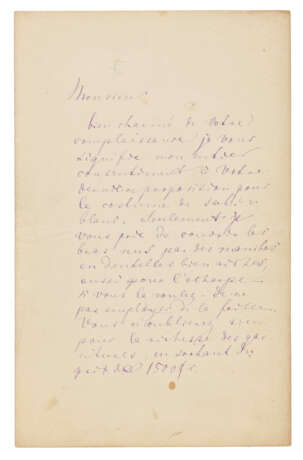 Monsieur
bien charmé de votre
complaisance je vous
signifie mon entier
consentement à votre
dernière proposition pour
le costume de satin
blanc. Seulement je
vous prie de couvrir les
bras nus par des manches
en dentelles bien
aussi pour l'écharpe
si vous le voulez. Ne
pas employer de la
Vous n'oublierez rien
pour la richesse des gar
nitures, en sachant du
prix de 1500 fr.